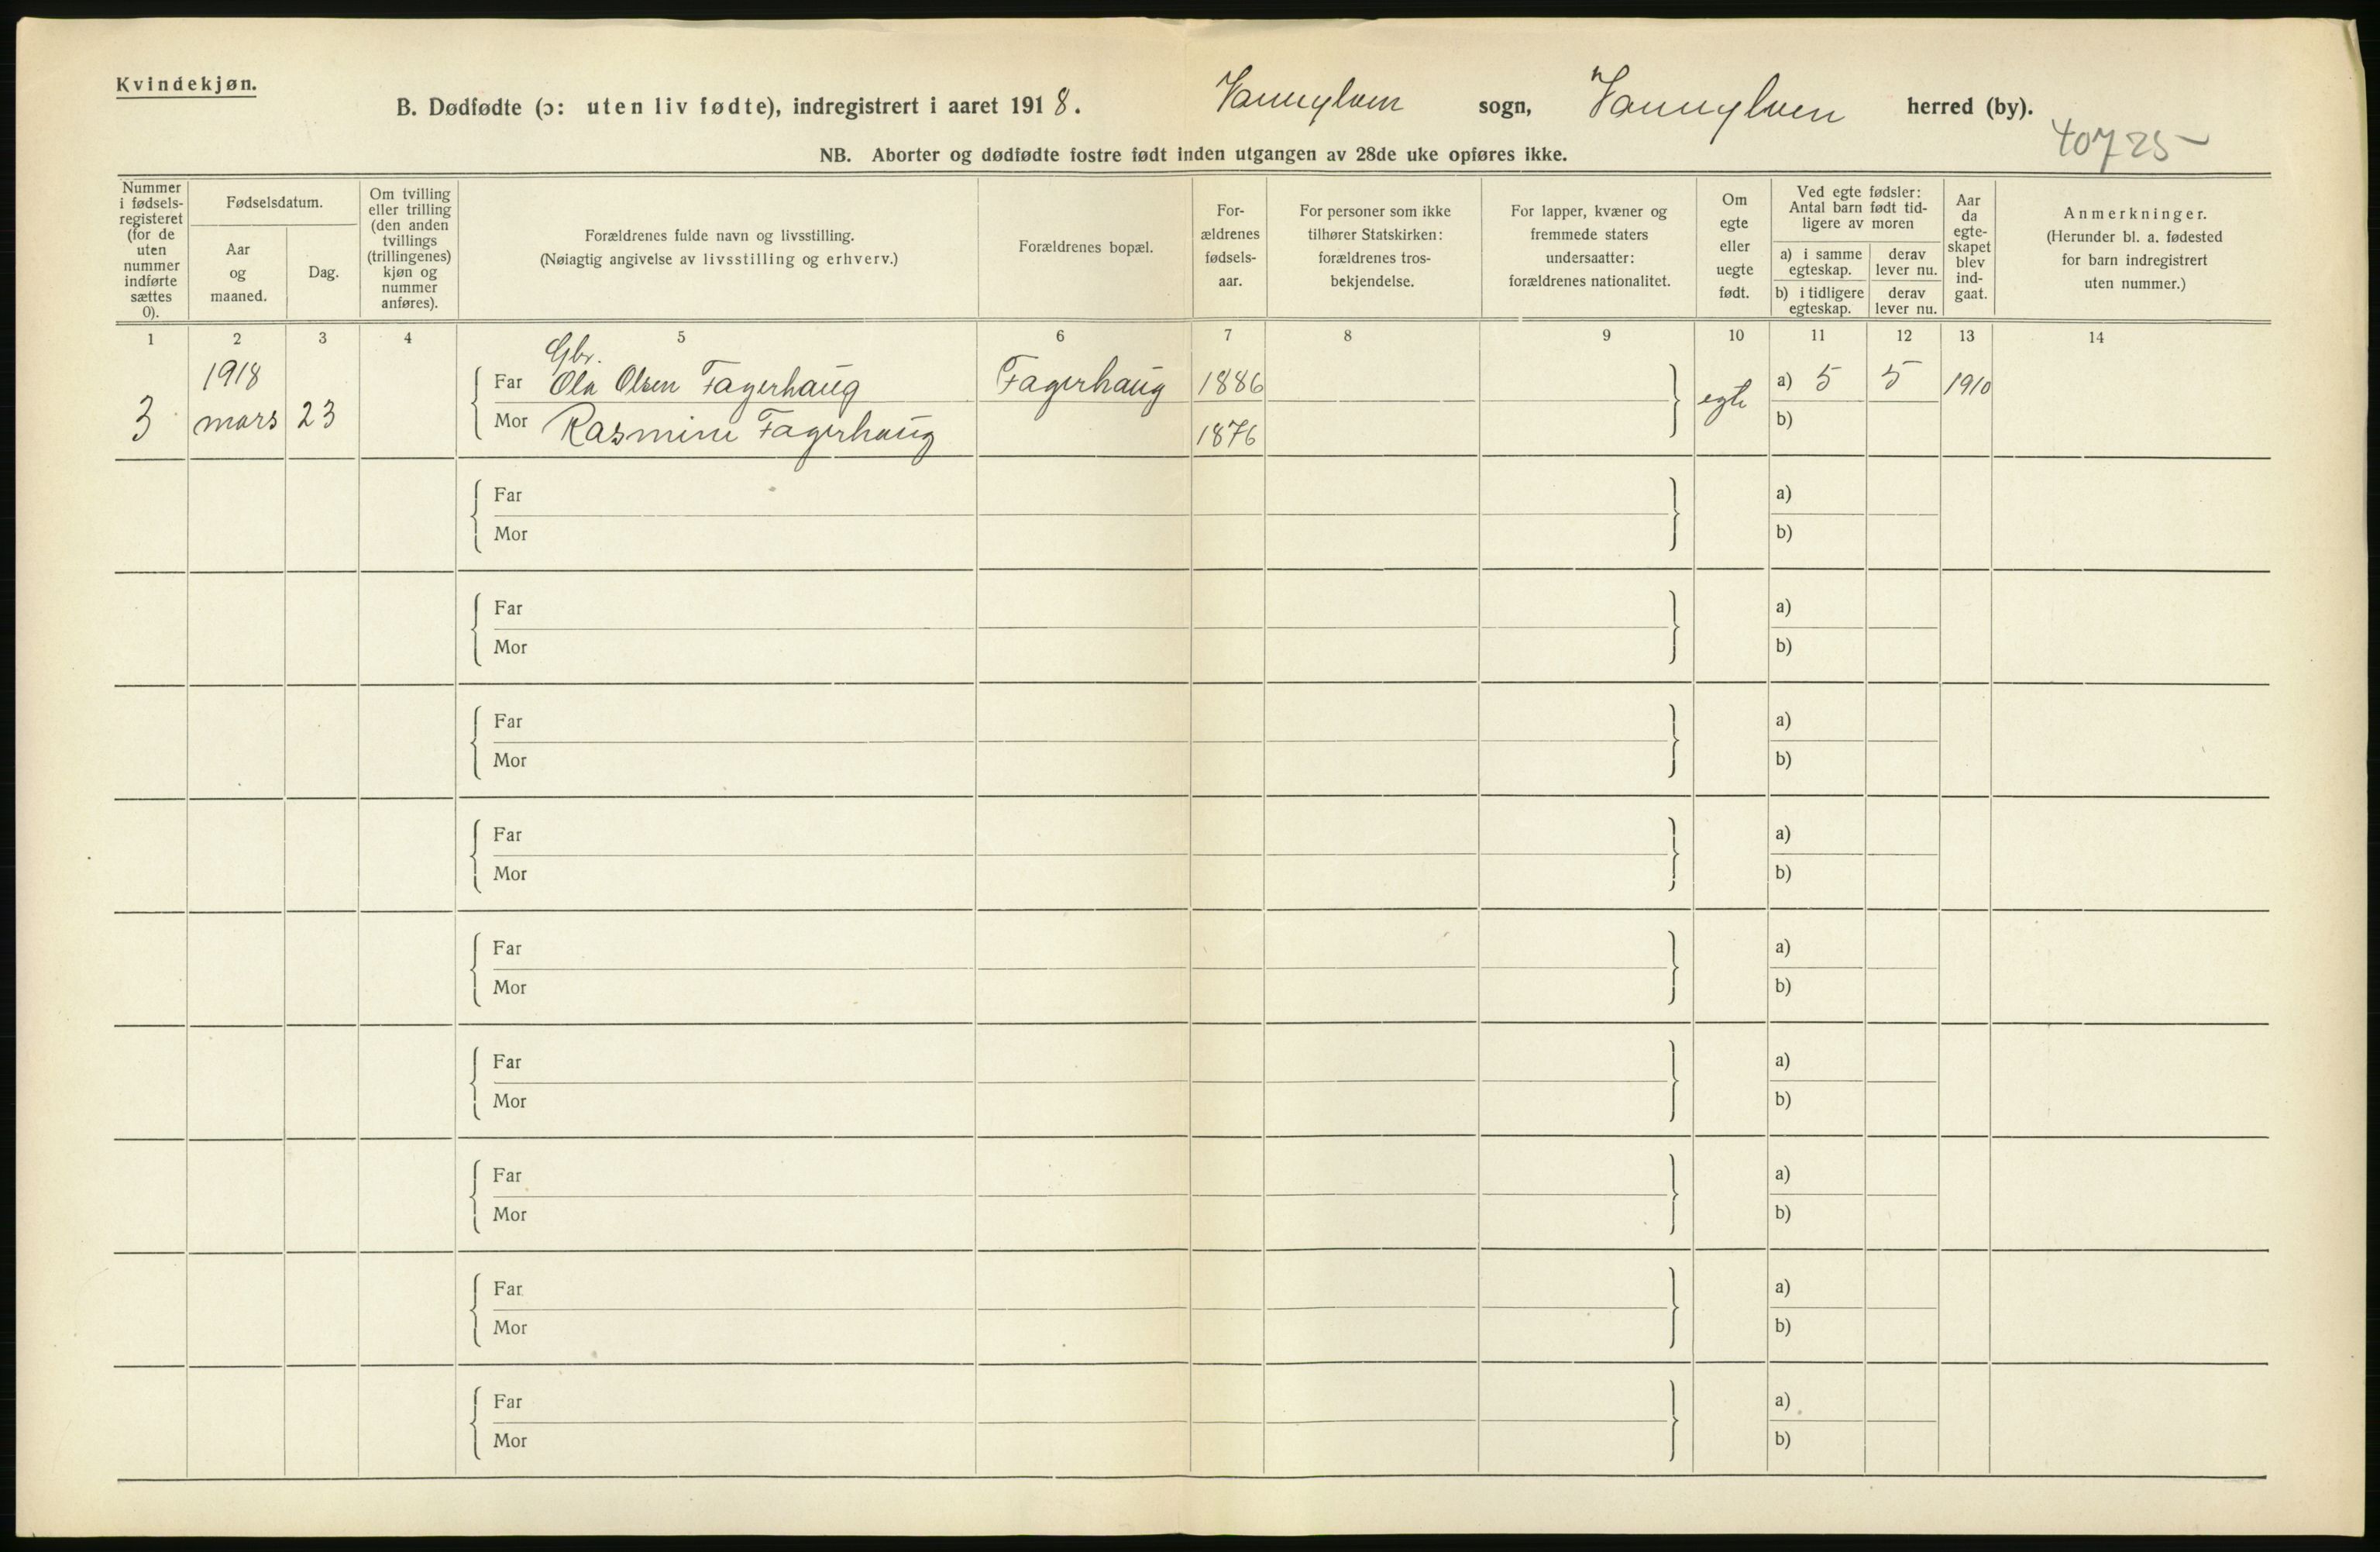 Kvindekjøn.
B. Dødfødte (ɔ: uten liv fødte), indregistrert i aaret 1918. Vannylven sogn, Vannylven herred (by).
40725-
NB. Aborter og dødfødte fostre født inden utgangen av 28de uke opføres ikke.
Nummer
i fødsels-
registeret
(for de
uten
nummer
indførte
sættes
0).
Fødselsdatum.
Aar
og
maaned.
Dag.
Om tvilling
eller trilling
(den anden
tvillings
(trillingenes)
kjøn og
nummer
anføres).
Forældrenes fulde navn og livsstilling.
(Nøiagtig angivelse av livsstilling og erhverv.)
Forældrenes bopæl.
For-
ældrenes
fødsels-
aar.
For personer som ikke
tilhører Statskirken:
forældrenes tros-
bekjendelse.
For lapper, kvæner og
fremmede staters
undersaatter:
forældrenes nationalitet.
Om
egte
eller
uegte
født.
Ved egte fødsler:
Antal barn født tid-
ligere av moren
a) i samme
egteskap.
derav
lever nu.
b) i tidligere
egteskap.
derav
lever nu.
Aar
da
egte-
skapet
blev
ind-
gaat.
Anmerkninger.
(Herunder bl. a. fødested
for barn indregistrert
uten nummer.)
1 2 3 4 5 6 7 8 9 10 11 12 13 14
Gbr.
1918 Far Ola Olsen Fagerhaug Fagerhaug 1886 egte a) 5 5 1910
3 mars 23 Mor Rasmine Fagerhaug 1876 b)
Far a)
Mor b)
Far a)
Mor b)
Far a)
Mor b)
Far a)
Mor b)
Far a)
Mor b)
Far a)
Mor b)
Far a)
Mor b)
Far a)
Mor b)
Far a)
Mor b)